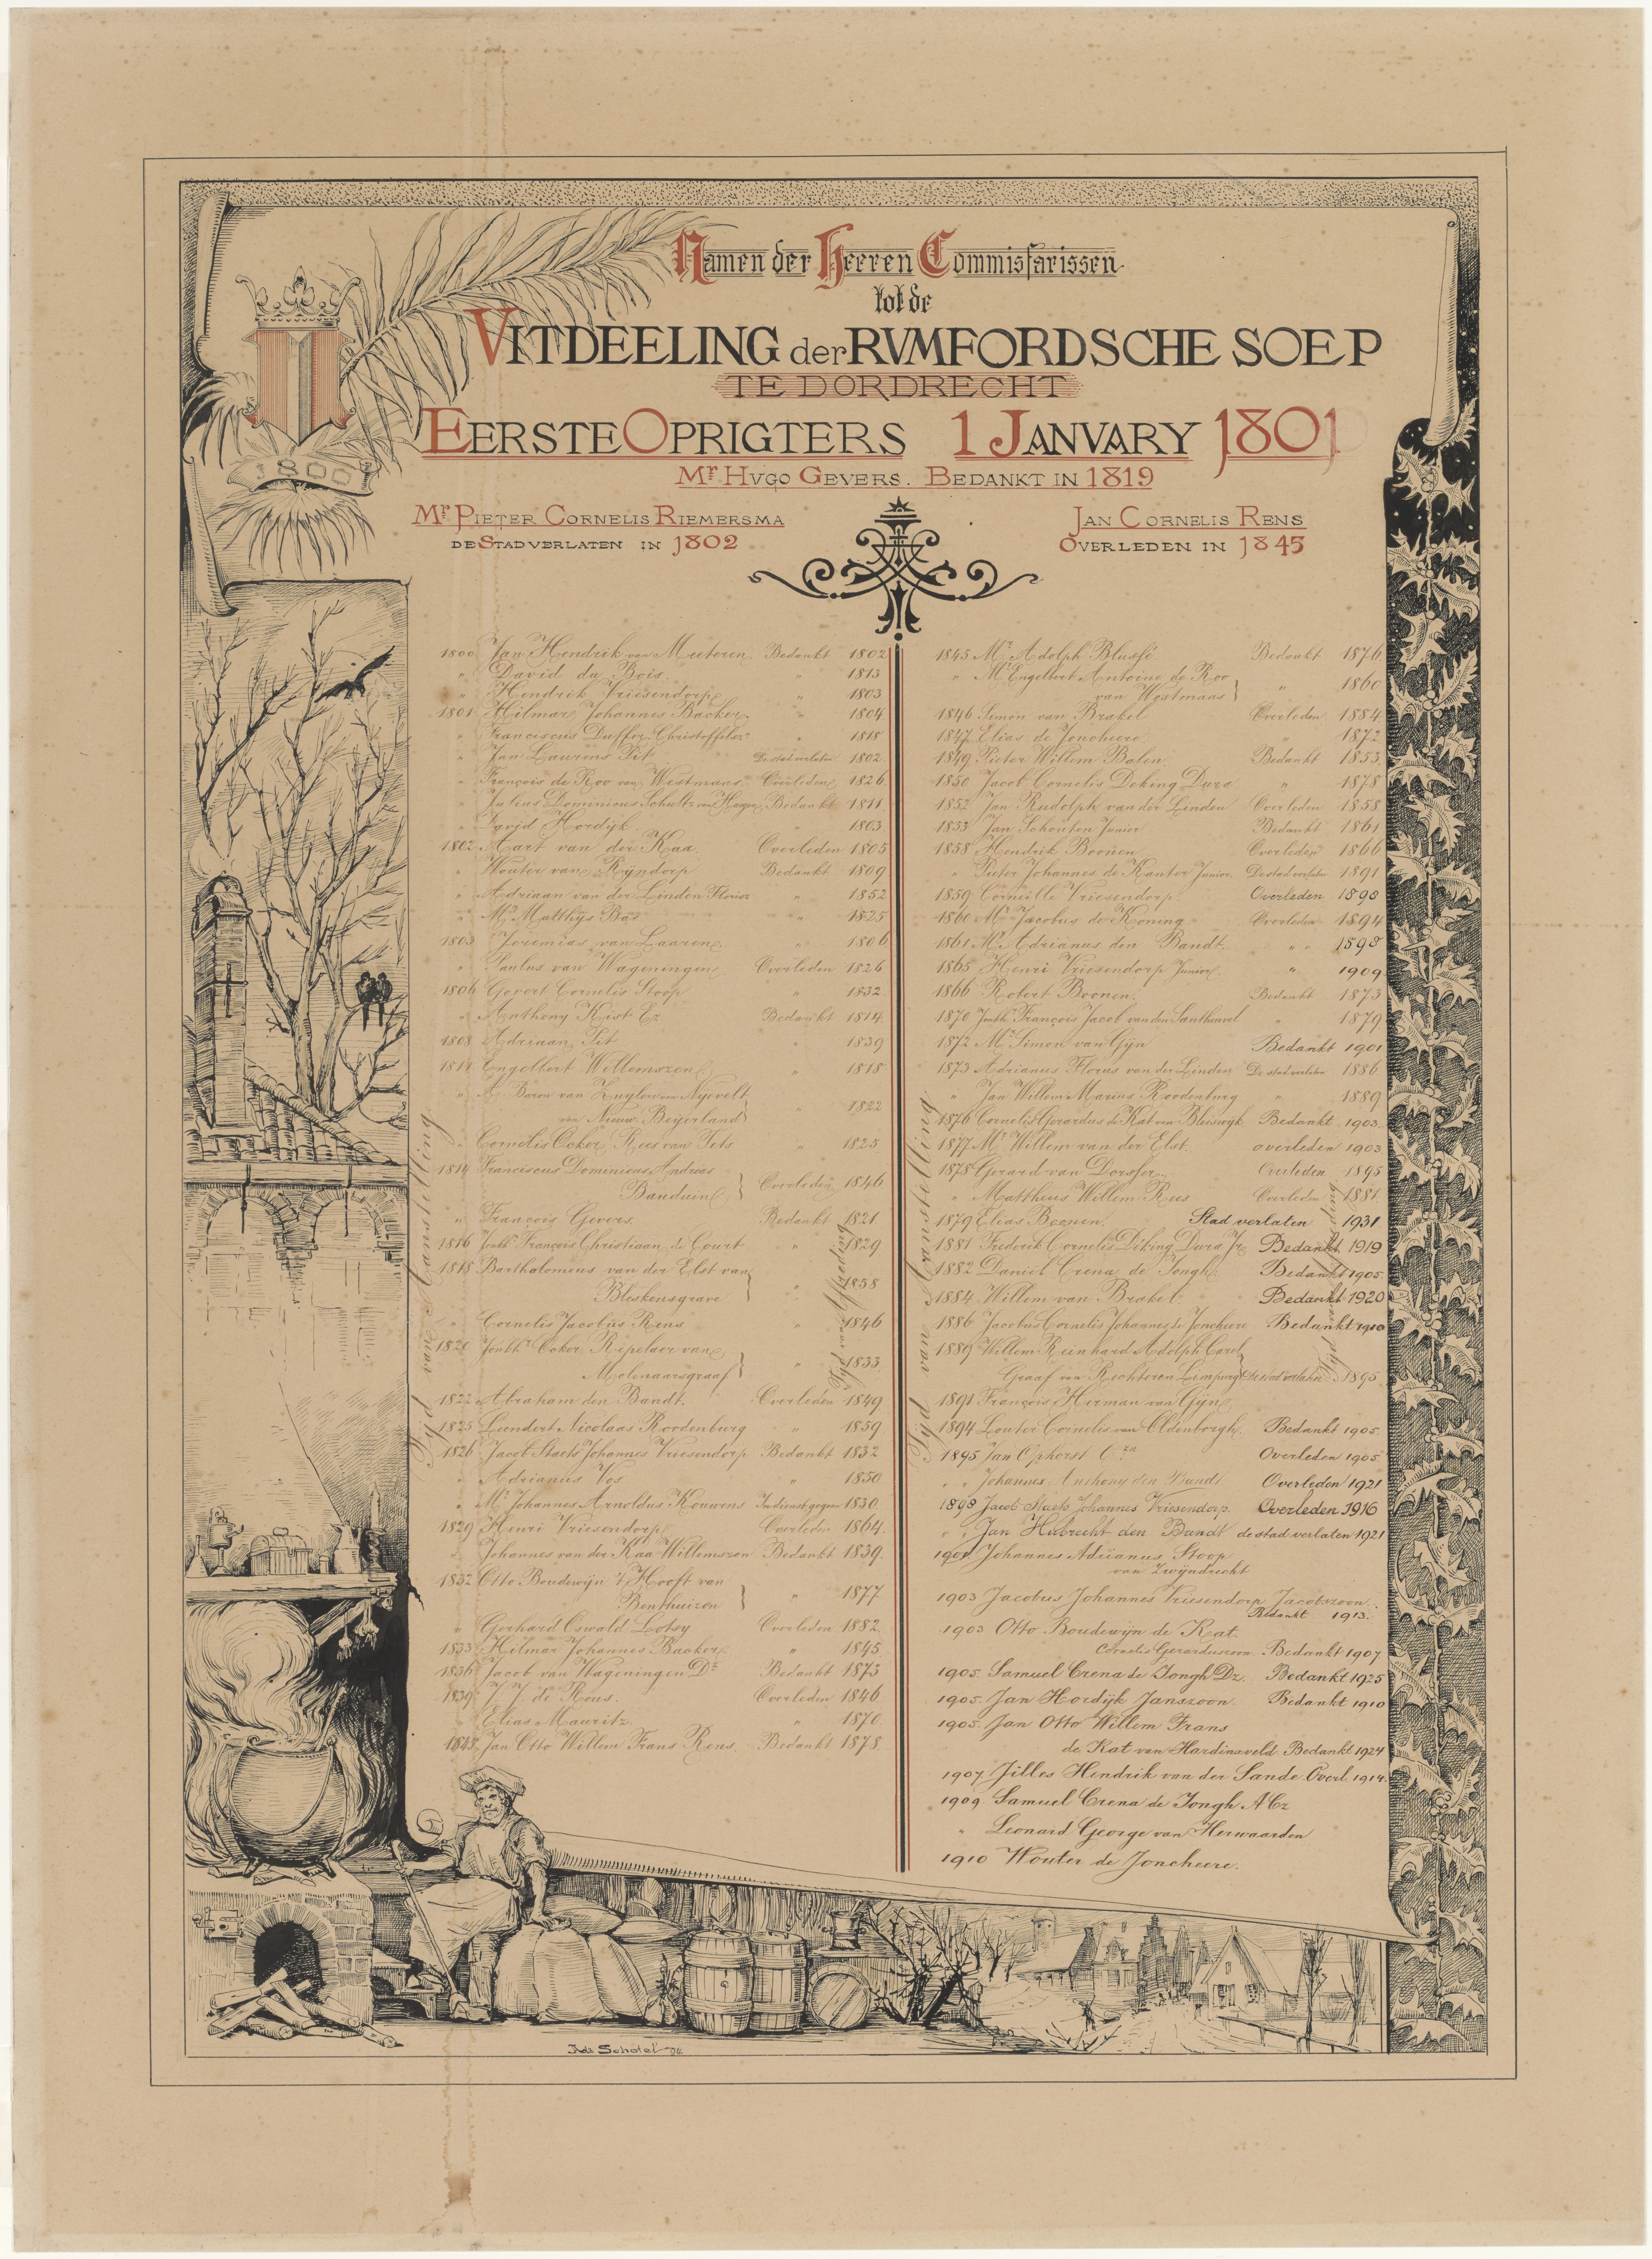 Namen der Heeren Commissarissen
tot de
VITDEELING der RVMFORDSCHE SOEP
TE DORDRECHT
EERSTE OPRIGTERS 1 JANVARY 1801
Mr. HVGO GEVERS. BEDANKT IN 1819
Mr. PIETER CORNELIS RIEMERSMA
DE STAD VERLATEN IN 1802
JAN CORNELIS RENS
OVERLEDEN IN 1845
1800
1800 Jan Hendrik van Meteren. Bedankt 1802
" David du Bois. " 1813
" Hendrik Vriesendorp " 1803
1801 Hilmar Johannes Backer. " 1804
" Franciscus Duffer Christoffelsz. " 1818
" Jan Laurens Pit De stad verlaten 1802
" François de Roo van Westmaas. Overleden 1826
" Julius Dominicus Schultz van Hagen Bedankt 1811
" David Hordijk " 1803
1802 Aart van der Kaa Overleden 1805
" Wouter van Rijndorp Bedankt 1809
" Adriaan van der Linden Florisz " 1852
" Mr. Matthijs Bas " 1825
1803 Jeremias van Laaren " 1806
" Paulus van Wageningen Overleden 1826
1806 Govert Cornelis Stoop " 1832
" Anthony Kist Ez. Bedankt 1814
1808 Adriaan Pit " 1839
1811 Engelbert Willemszen " 1818
" Baron van Zuylen van Nyevelt
van Nieuw Beijerland " 1822
" Cornelis Ocker Rees van Tets " 1825
1814 Franciscus Dominicus Andreas
Bauduin Overleden 1846
" François Gevers. Bedankt 1821
1816 Jonkhr. François Christiaan de Court " 1829
1818 Bartholomeus van der Elst van
Bleskensgrave " 1838
" Cornelis Jacobus Rens " 1846
1820 Jonkhr. Ocker Repelaer van
Molenaarsgraaf " 1833
1822 Abraham den Bandt. Overleden 1849
1825 Leendert Nicolaas Roodenburg " 1859
1826 Jacob Staets Johannes Vriesendorp Bedankt 1832
" Adrianus Vos " 1850
" Mr. Johannes Arnoldus Kouwens In dienst gegaan 1830.
1829 Henri Vriesendorp Overleden 1864.
" Johannes van der Kaa Willemszen Bedankt 1839.
1832 Otto Boudewijn 't Hooft van
Benthuizen " 1877
" Gerhard Oswald Lotsy Overleden 1882
1833 Hilmar Johannes Backer " 1845
1836 Jacob van Wageningen Dz. Bedankt 1873
1839 J. J. de Reus. Overleden 1846
" Elias Mauritz " 1870
1845 Jan Otto Willem Frans Rens. Bedankt 1878
Tijd van Aanstelling
Tijd van Aftreding
1845 Mr. Adolph Blussé Bedankt 1876
" Mr. Engelbert Antoine de Roo
van Westmaas " 1860
1846 Simon van Brakel Overleden 1884
1847 Elias de Joncheere " 1872
1849 Pieter Willem Balen. Bedankt 1853
1850 Jacob Cornelis Deking Dura " 1878
1852 Jan Rudolph van der Linden Overleden 1858
1853 Jan Schouten Junior Bedankt 1861
1858 Hendrik Boonen Overleden 1866
" Pieter Johannes de Kanter Junior. De stad verlaten 1891
1859 Corneille Vriesendorp Overleden 1898
1860 Mr. Jacobus de Koning Overleden 1894
1861 Mr. Adrianus den Bandt. " " 1898
1865 Henri Vriesendorp Junior. " 1909
1866 Robert Boonen. Bedankt 1873
1870 Jonkhr. François Jacob van den Santheuvel " 1879
1872 Mr. Simon van Gijn Bedankt 1901
1873 Adrianus Florus van der Linden De stad verlaten 1886
" Jan Willem Marius Roodenburg " 1889
1876 Cornelis Gerardus de Kat van Bleiswijk Bedankt 1903
1877 Mr. Willem van der Elst overleden 1903
1878 Gerard van Dorsser Overleden 1895
" Mattheus Willem Rees Overleden 1881
1879 Elias Boonen. Stad verlaten 1931
1881 Frederik Cornelis Deking Dura Jr. Bedankt 1919
1882 Daniel Crena de Iongh. Bedankt 1905
1884 Willem van Brakel Bedankt 1920
1886 Jacobus Cornelis Johannes de Joncheere Bedankt 1900
1889 Willem Reinhard Adolph Carel
Graaf van Rechteren Limpurg De stad verlaten 1895
1891 François Herman van Gijn
1894 Louter Cornelis van Oldenborgh Bedankt 1905
1895 Jan Ophorst Czn Overleden 1905
" " Johannes Anthony den Bandt Overleden 1921
1898 Jacob Staets Johannes Vriesendorp. Overleden 1916
" " Jan Hubrecht den Bandt de stad verlaten 1921
1901 Johannes Adrianus Stoop
van Zwijndrecht
1903 Jacobus Johannes Vriesendorp Jacobszoon.
Bedankt 1913.
1903 Otto Boudewijn de Kat.
Cornelis Gerarduszoon Bedankt 1907
1905. Samuel Crena de Iongh Dz. Bedankt 1925
1905. Jan Hordijk Janszoon. Bedankt 1910
1905. Jan Otto Willem Frans
de Kat van Hardinxveld. Bedankt 1924
1907 Jilles Hendrik van der Sande Overl. 1914.
1909 Samuel Crena de Iongh ACz
" Leonard George van Herwaarden
1910 Wouter de Joncheere.
Tijd van Aanstelling
Tijd van Aftreding
Schotel